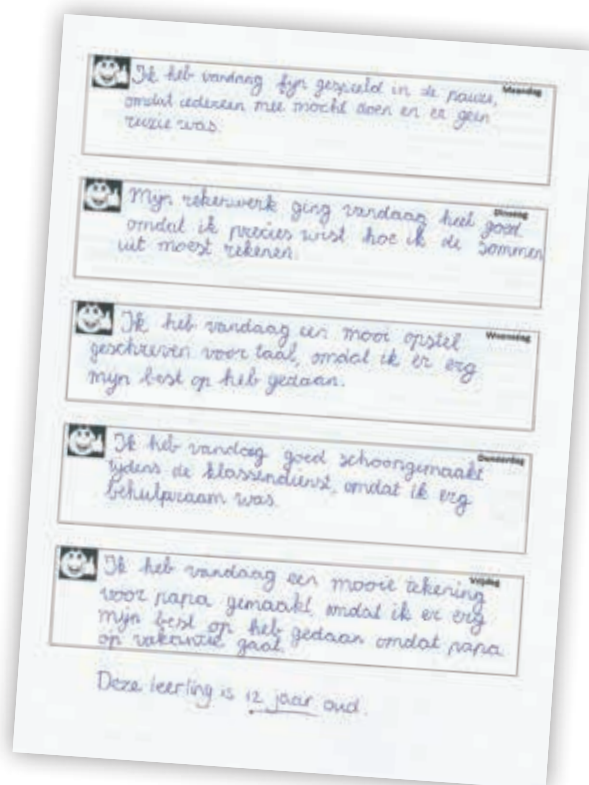 Maandag
Ik heb vandaag fijn gespeeld in de pauze,
omdat iedereen mee mocht doen en er geen
ruzie was.
Dinsdag
Mijn rekenwerk ging vandaag heel goed
omdat ik precies wist hoe ik de sommen
uit moest rekenen.
Woensdag
Ik heb vandaag een mooi opstel
geschreven voor taal, omdat ik er erg
mijn best op heb gedaan.
Donderdag
Ik heb vandaag goed schoongemaakt
tijdens de klassendienst, omdat ik erg
behulpzaam was.
Vrijdag
Ik heb vandaag een mooie tekening
voor papa gemaakt, omdat ik er erg
mijn best op heb gedaan omdat papa
op vakantie gaat.
Deze leerling is 12 jaar oud.